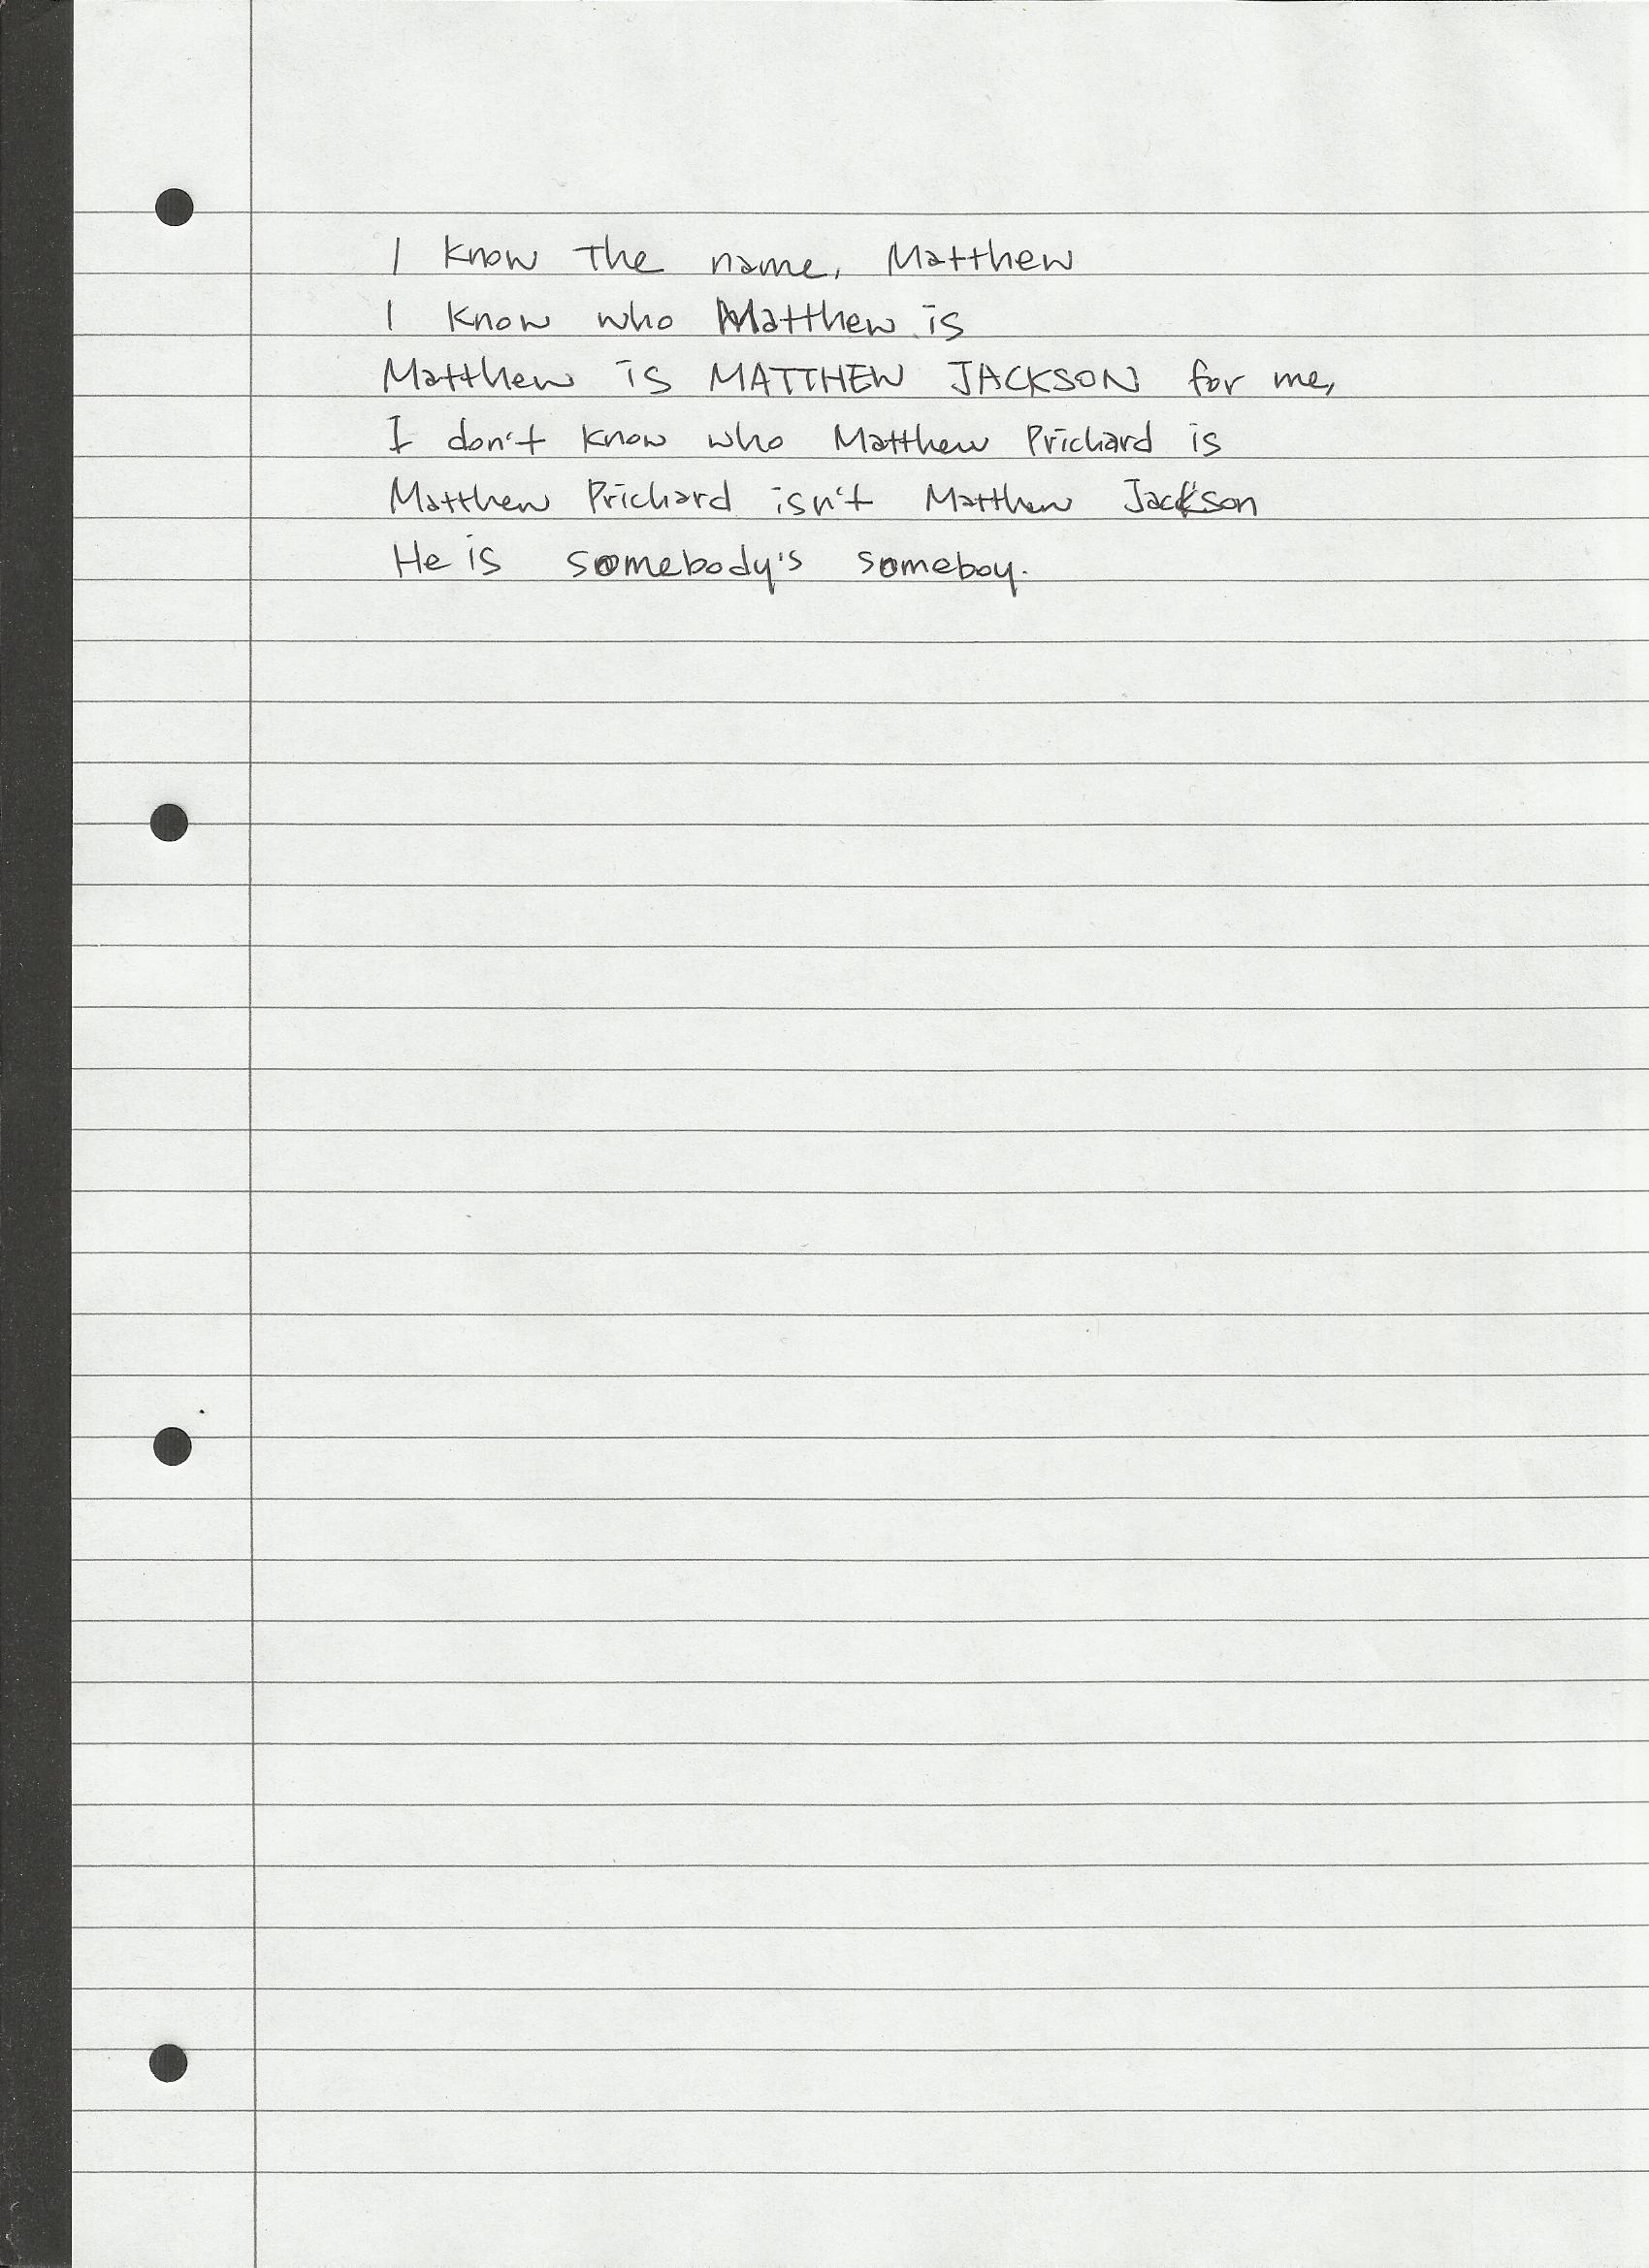 I know The name, Matthew
I know who Matthew is
Matthew is MATTHEW JACKSON for me,
I don't know who Matthew Prichard is
Matthew Prichard isn't Matthew Jackson
He is somebody's someboy.